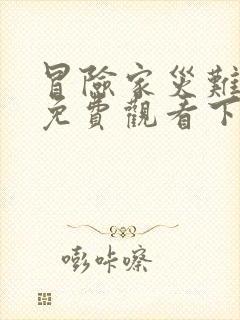 冒險家災難
免費觀看下
嘭咔嚓